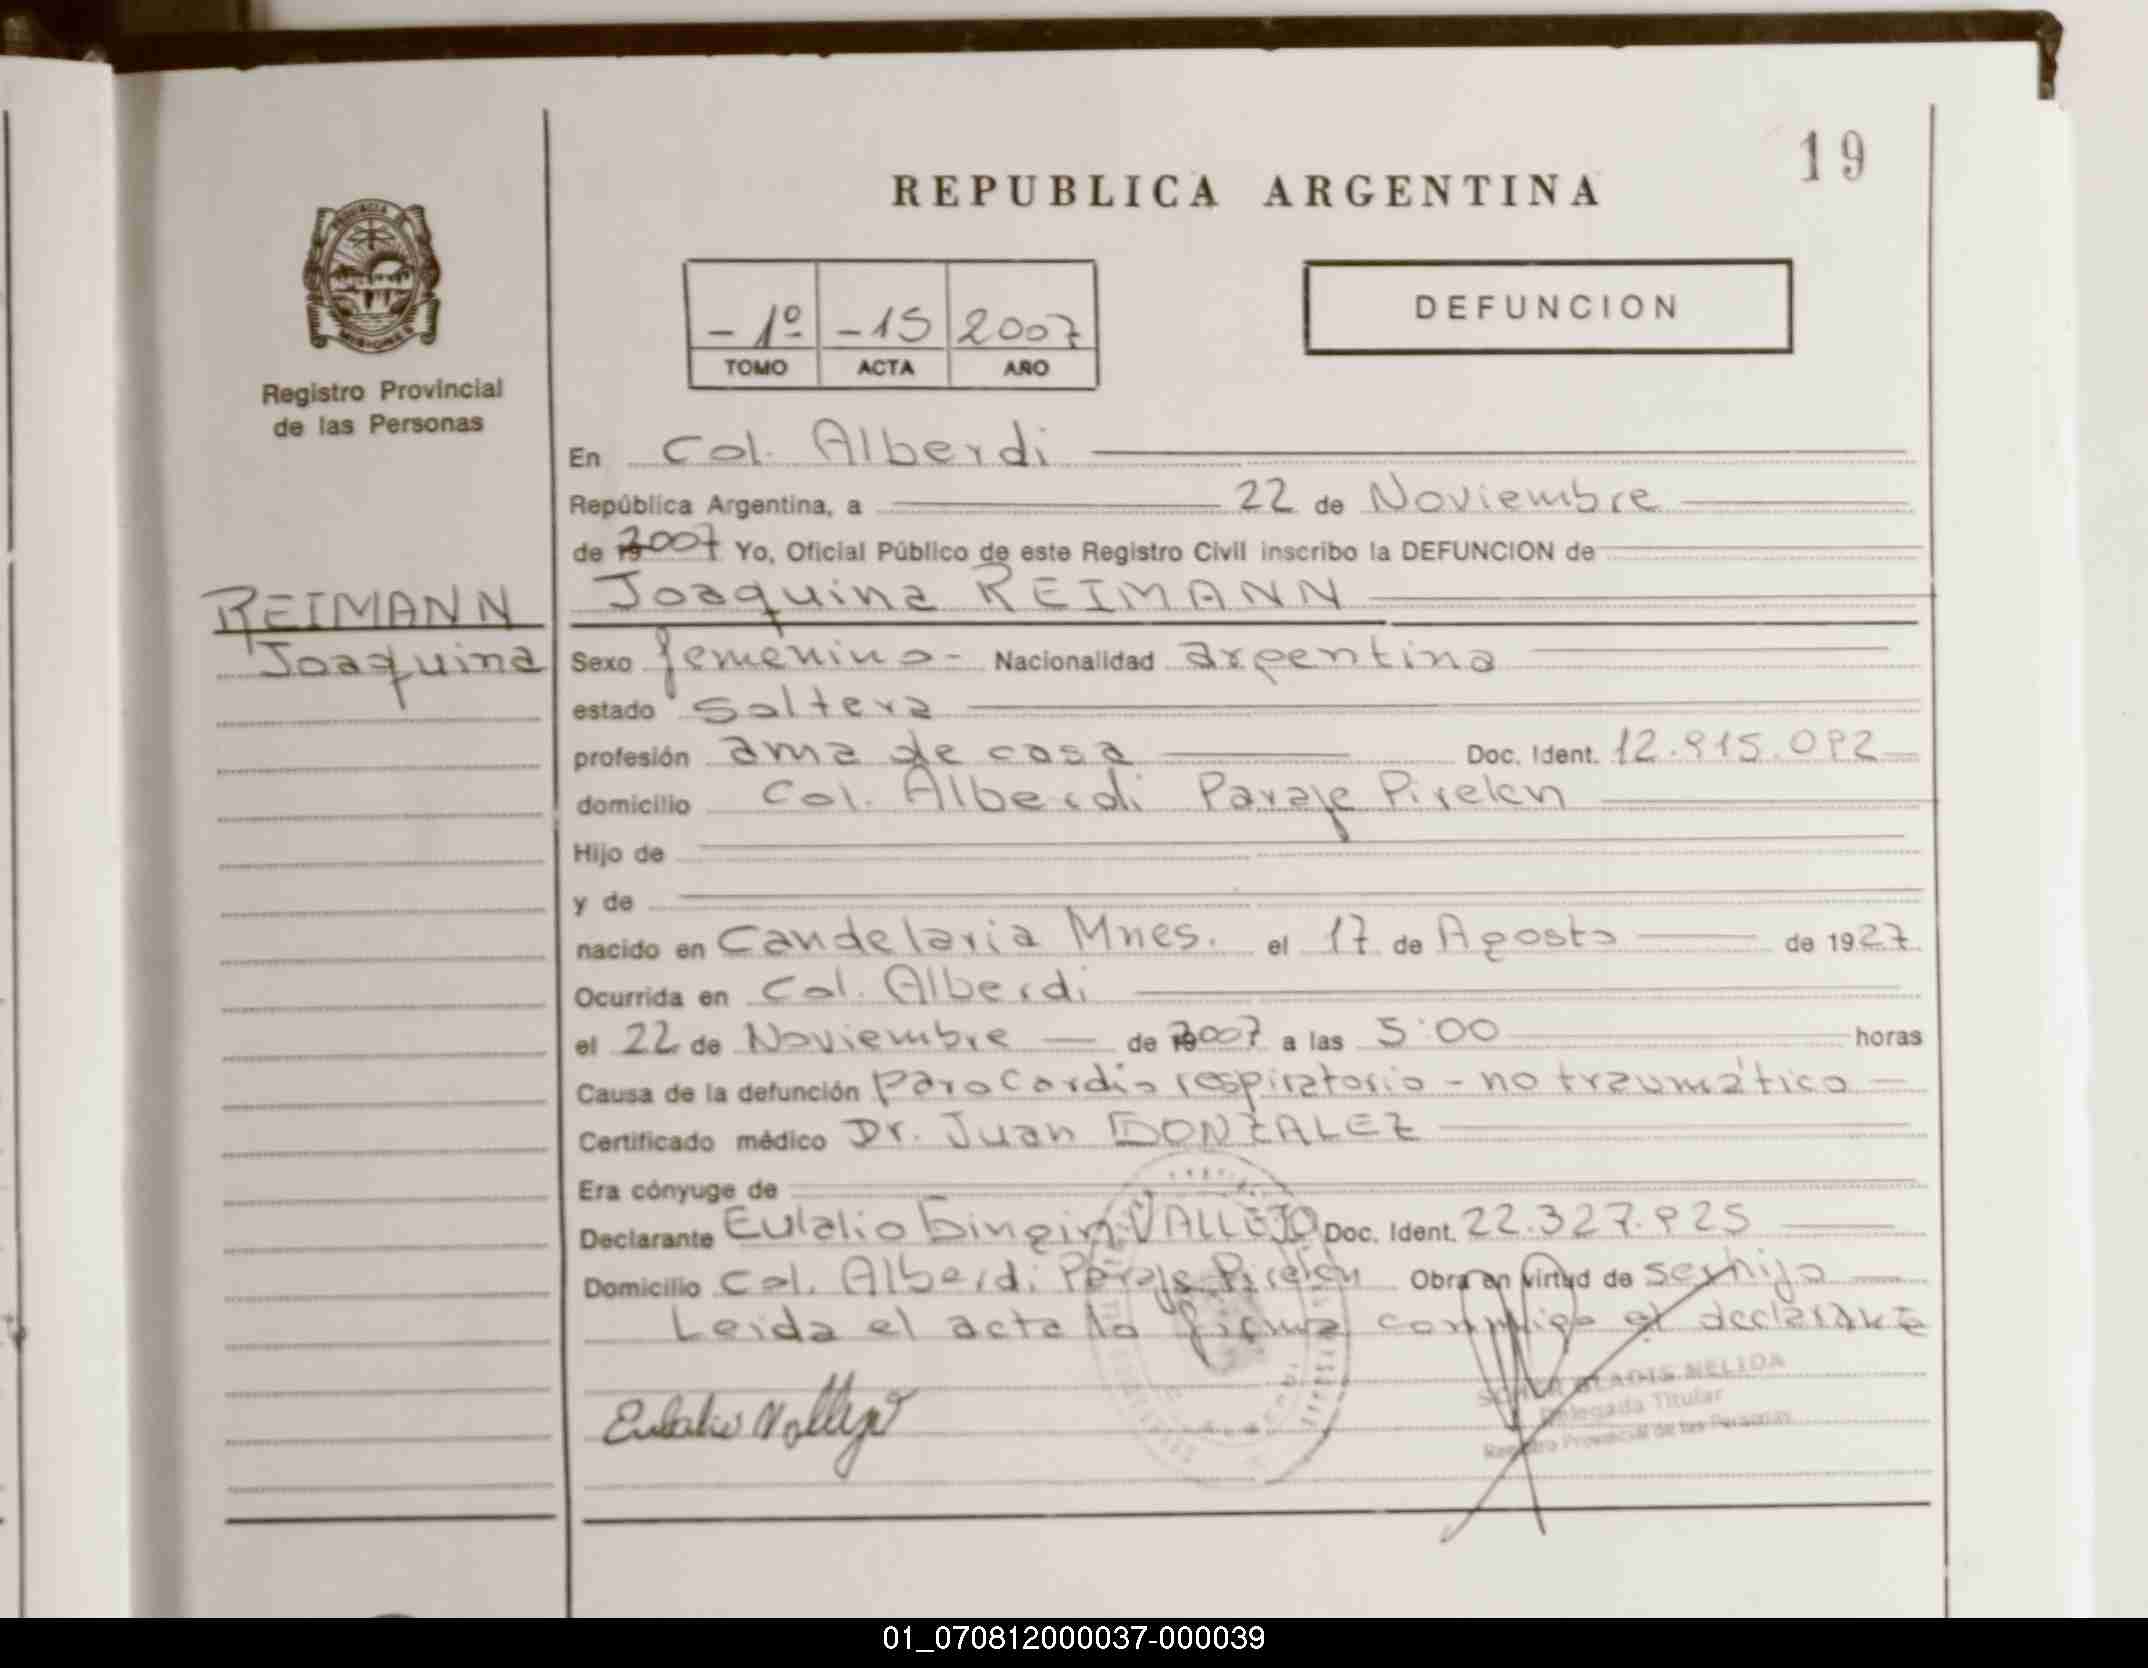 19
REPUBLICA ARGENTINA
DEFUNCION
- 1º - 15 2007
TOMO ACTA AÑO
Registro Provincial
de las Personas
REIMANN
Joaquina
En Col. Alberdi
República Argentina, a 22 de Noviembre
de 2007 Yo, Oficial Público de este Registro Civil inscribo la DEFUNCION de
Joaquina REIMANN
Sexo femenino- Nacionalidad argentina
estado soltera
profesión ama de casa Doc. Ident. 12.915.092
domicilio Col. Alberdi Paraje Pirelen
Hijo de
y de
nacido en Candelaria Mnes. el 17 de Agosto de 1927
Ocurrida en Col. Alberdi
el 22 de Noviembre de 2007 a las 5:00 horas
Causa de la defunción paro Cardio respiratorio - no traumático
Certificado médico Dr. Juan GONZALEZ
Era cónyuge de
Declarante Eulalio VALLEJO Doc. Ident. 22.327.925
Domicilio Col. Alberdi Paraje Pirelen Obra en virtud de ser hijo
Leida el acta la firma conmigo el declarante
Eulalio Vallejo
GLADIS NELIDA
Delegada Titular
Registro Provincial de las Personas
01_070812000037-000039